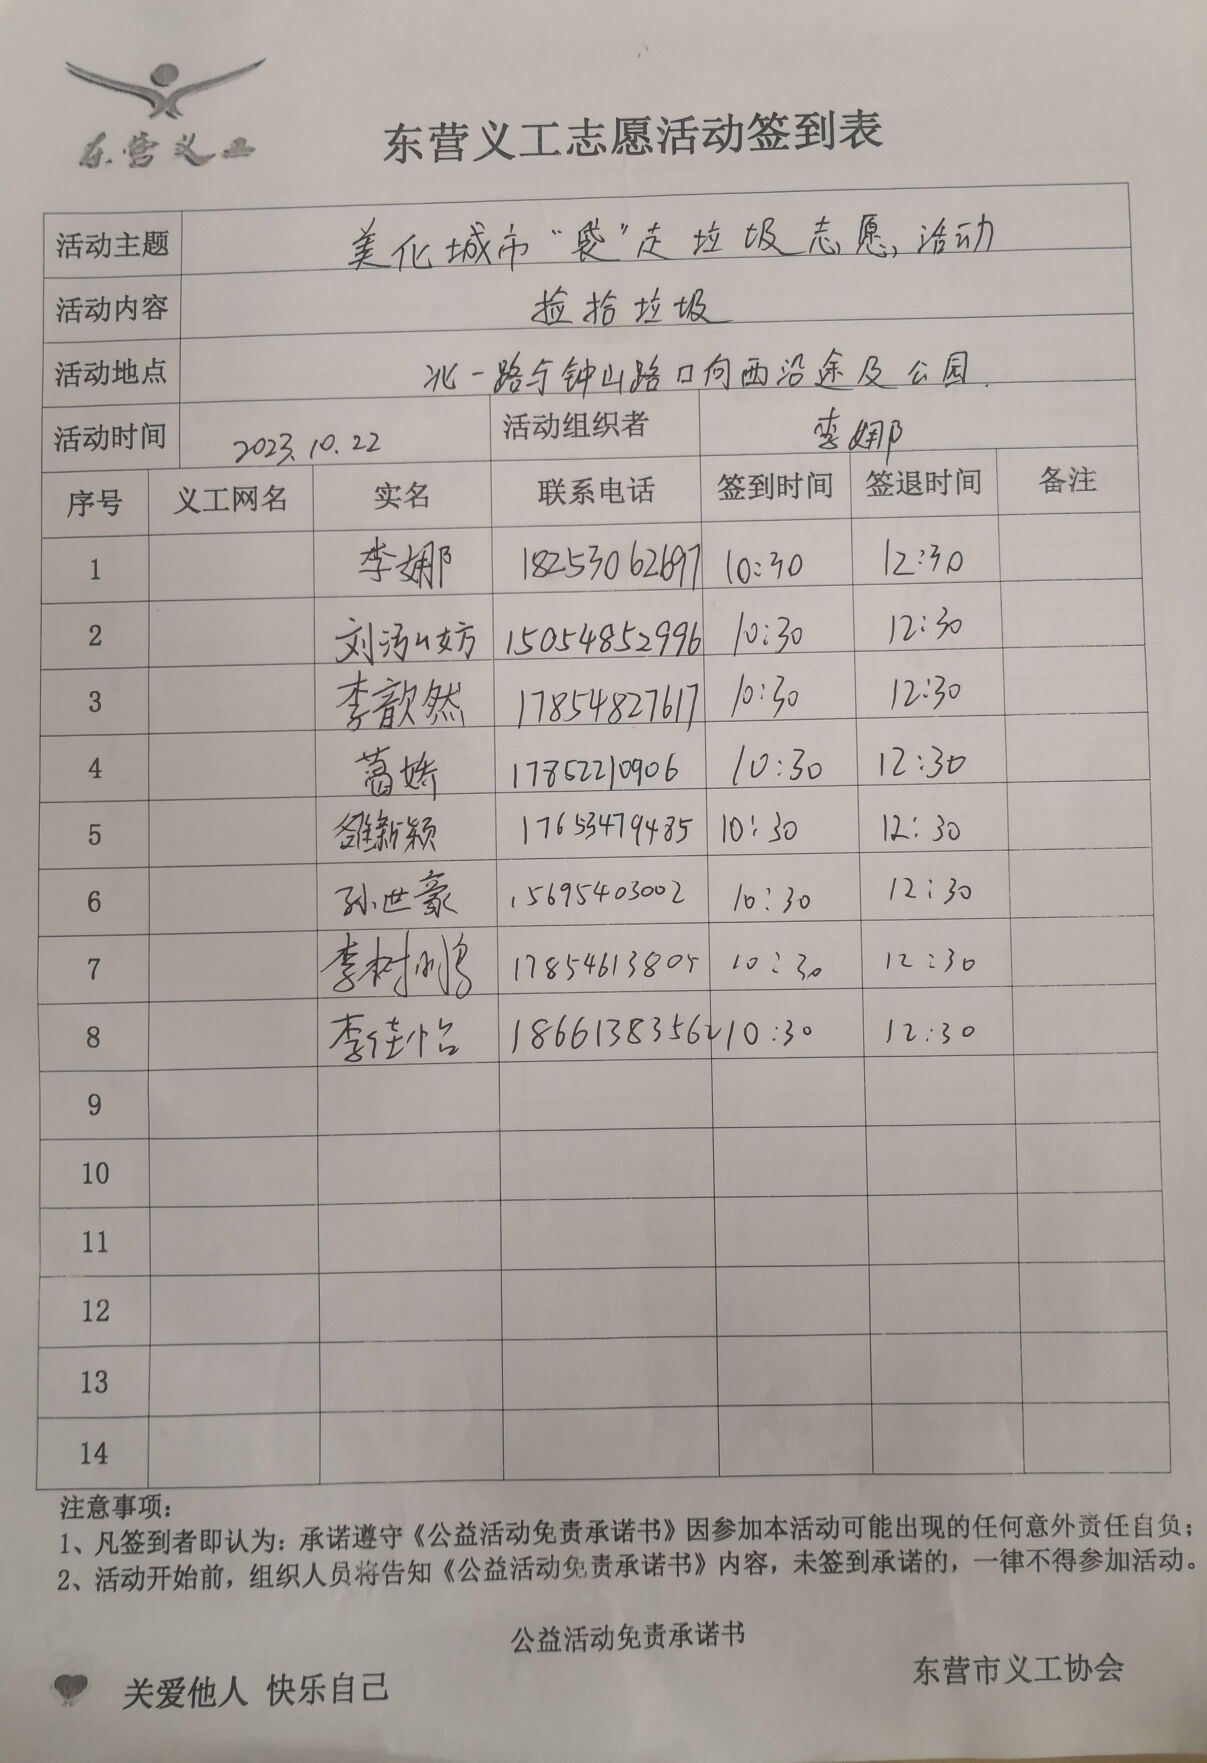 东营义工
东营义工志愿活动签到表
活动主题 美化城市“袋”走垃圾志愿活动
活动内容 捡拾垃圾
活动地点 北一路与钟山路口向西沿途及公园.
活动时间 2023.10.22 活动组织者 李娜
序号 义工网名 实名 联系电话 签到时间 签退时间 备注
1 李娜 18253062697 10:30 12:30
2 刘 15054852996 10:30 12:30
3 李歆然 17854827617 10:30 12:30
4 葛娇 17852210906 10:30 12:30
5 新颖 17653479485 10:30 12:30
6 孙世豪 15695403002 10:30 12:30
7 李树鹏 17854613805 10:30 12:30
8 李佳怡 18661383562 10:30 12:30
9
10
11
12
13
14
注意事项：
1、凡签到者即认为：承诺遵守《公益活动免责承诺书》因参加本活动可能出现的任何意外责任自负；
2、活动开始前，组织人员将告知《公益活动免责承诺书》内容，未签到承诺的，一律不得参加活动。
公益活动免责承诺书
关爱他人 快乐自己
东营市义工协会